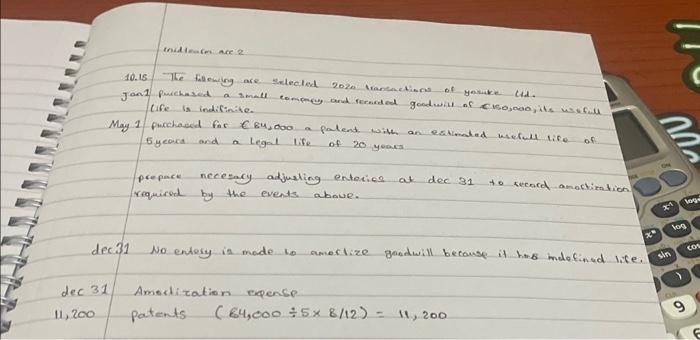 midleaten acc 2
10.15 The following are selected 2020 transactions of yosuke Ltd.
Jan 1 purchased a small company and recorded goodwill of €150,000, its usefull
life is indifinite.
May 1 purchased for €84,000 a patent with an estimated usefull life of
5 years and a legal life of 20 years
prepare necesary adjusting enteries at dec 31 to record amortization
required by the events above.
dec 31 No entery is made to amortize goodwill because it has indefined life.
dec 31 Amortization expense
11,200 patents (84,000 ÷ 5 × 8/12) = 11,200
ON
x⁻¹ log
xⁿ log
sin cos
)
9